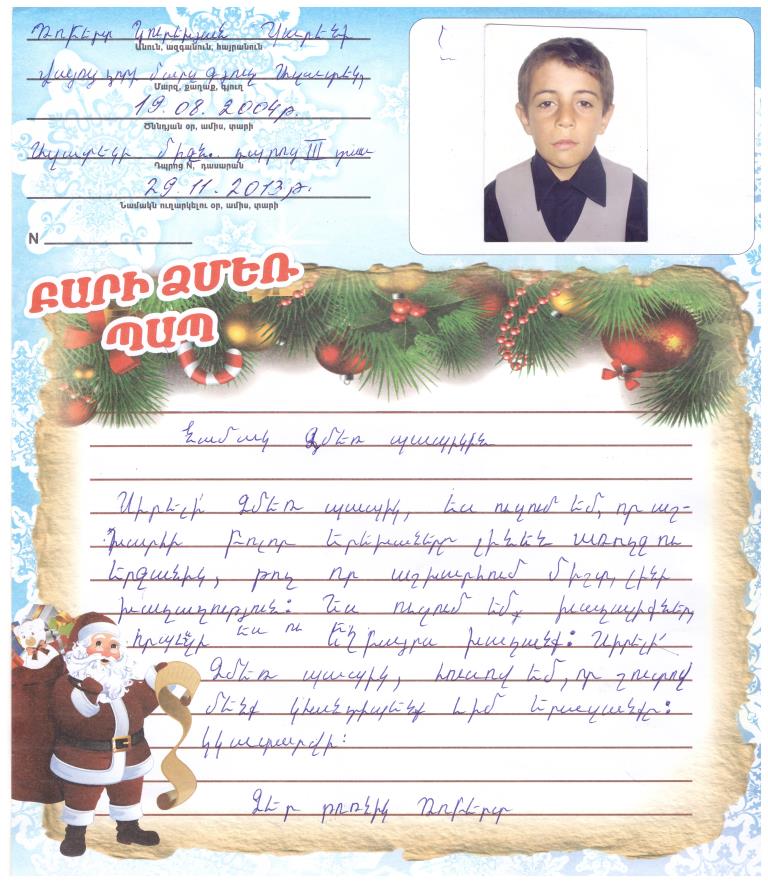 Ռոբերտ Կարենի
Անուն, ազգանուն, հայրանուն
Վայոց ձորի մարզ գյուղ Ագարակ
Մարզ, քաղաք, գյուղ
19. 08. 2004թ.
Ծննդյան օր, ամիս, տարի
միջն. դպրոց III դաս
Դպրոց N, դասարան
29. 11. 2013թ.
Նամակն ուղարկելու օր, ամիս, տարի
N
ԲԱՐԻ ՁՄԵՌ
ՊԱՊ
Նամակ Ձմեռ պապիկին
Սիրելի՛ Ձմեռ պապիկ, ես ուզում եմ, որ աշ-
խարհի բոլոր երեխաները լինեն առողջ ու
երջանիկ, թող որ աշխարհում միշտ լինի
խաղաղություն: Ես ուզում եմ խաղալիքներ,
որպեսզի ես ու եղբայրս խաղանք: Սիրելի՛
Ձմեռ պապիկ, հուսով եմ, որ շուտով
մենք կհանդիպենք և իմ երազանքը:
կկատարվի:
Ձեր թոռնիկ Ռոբերտ